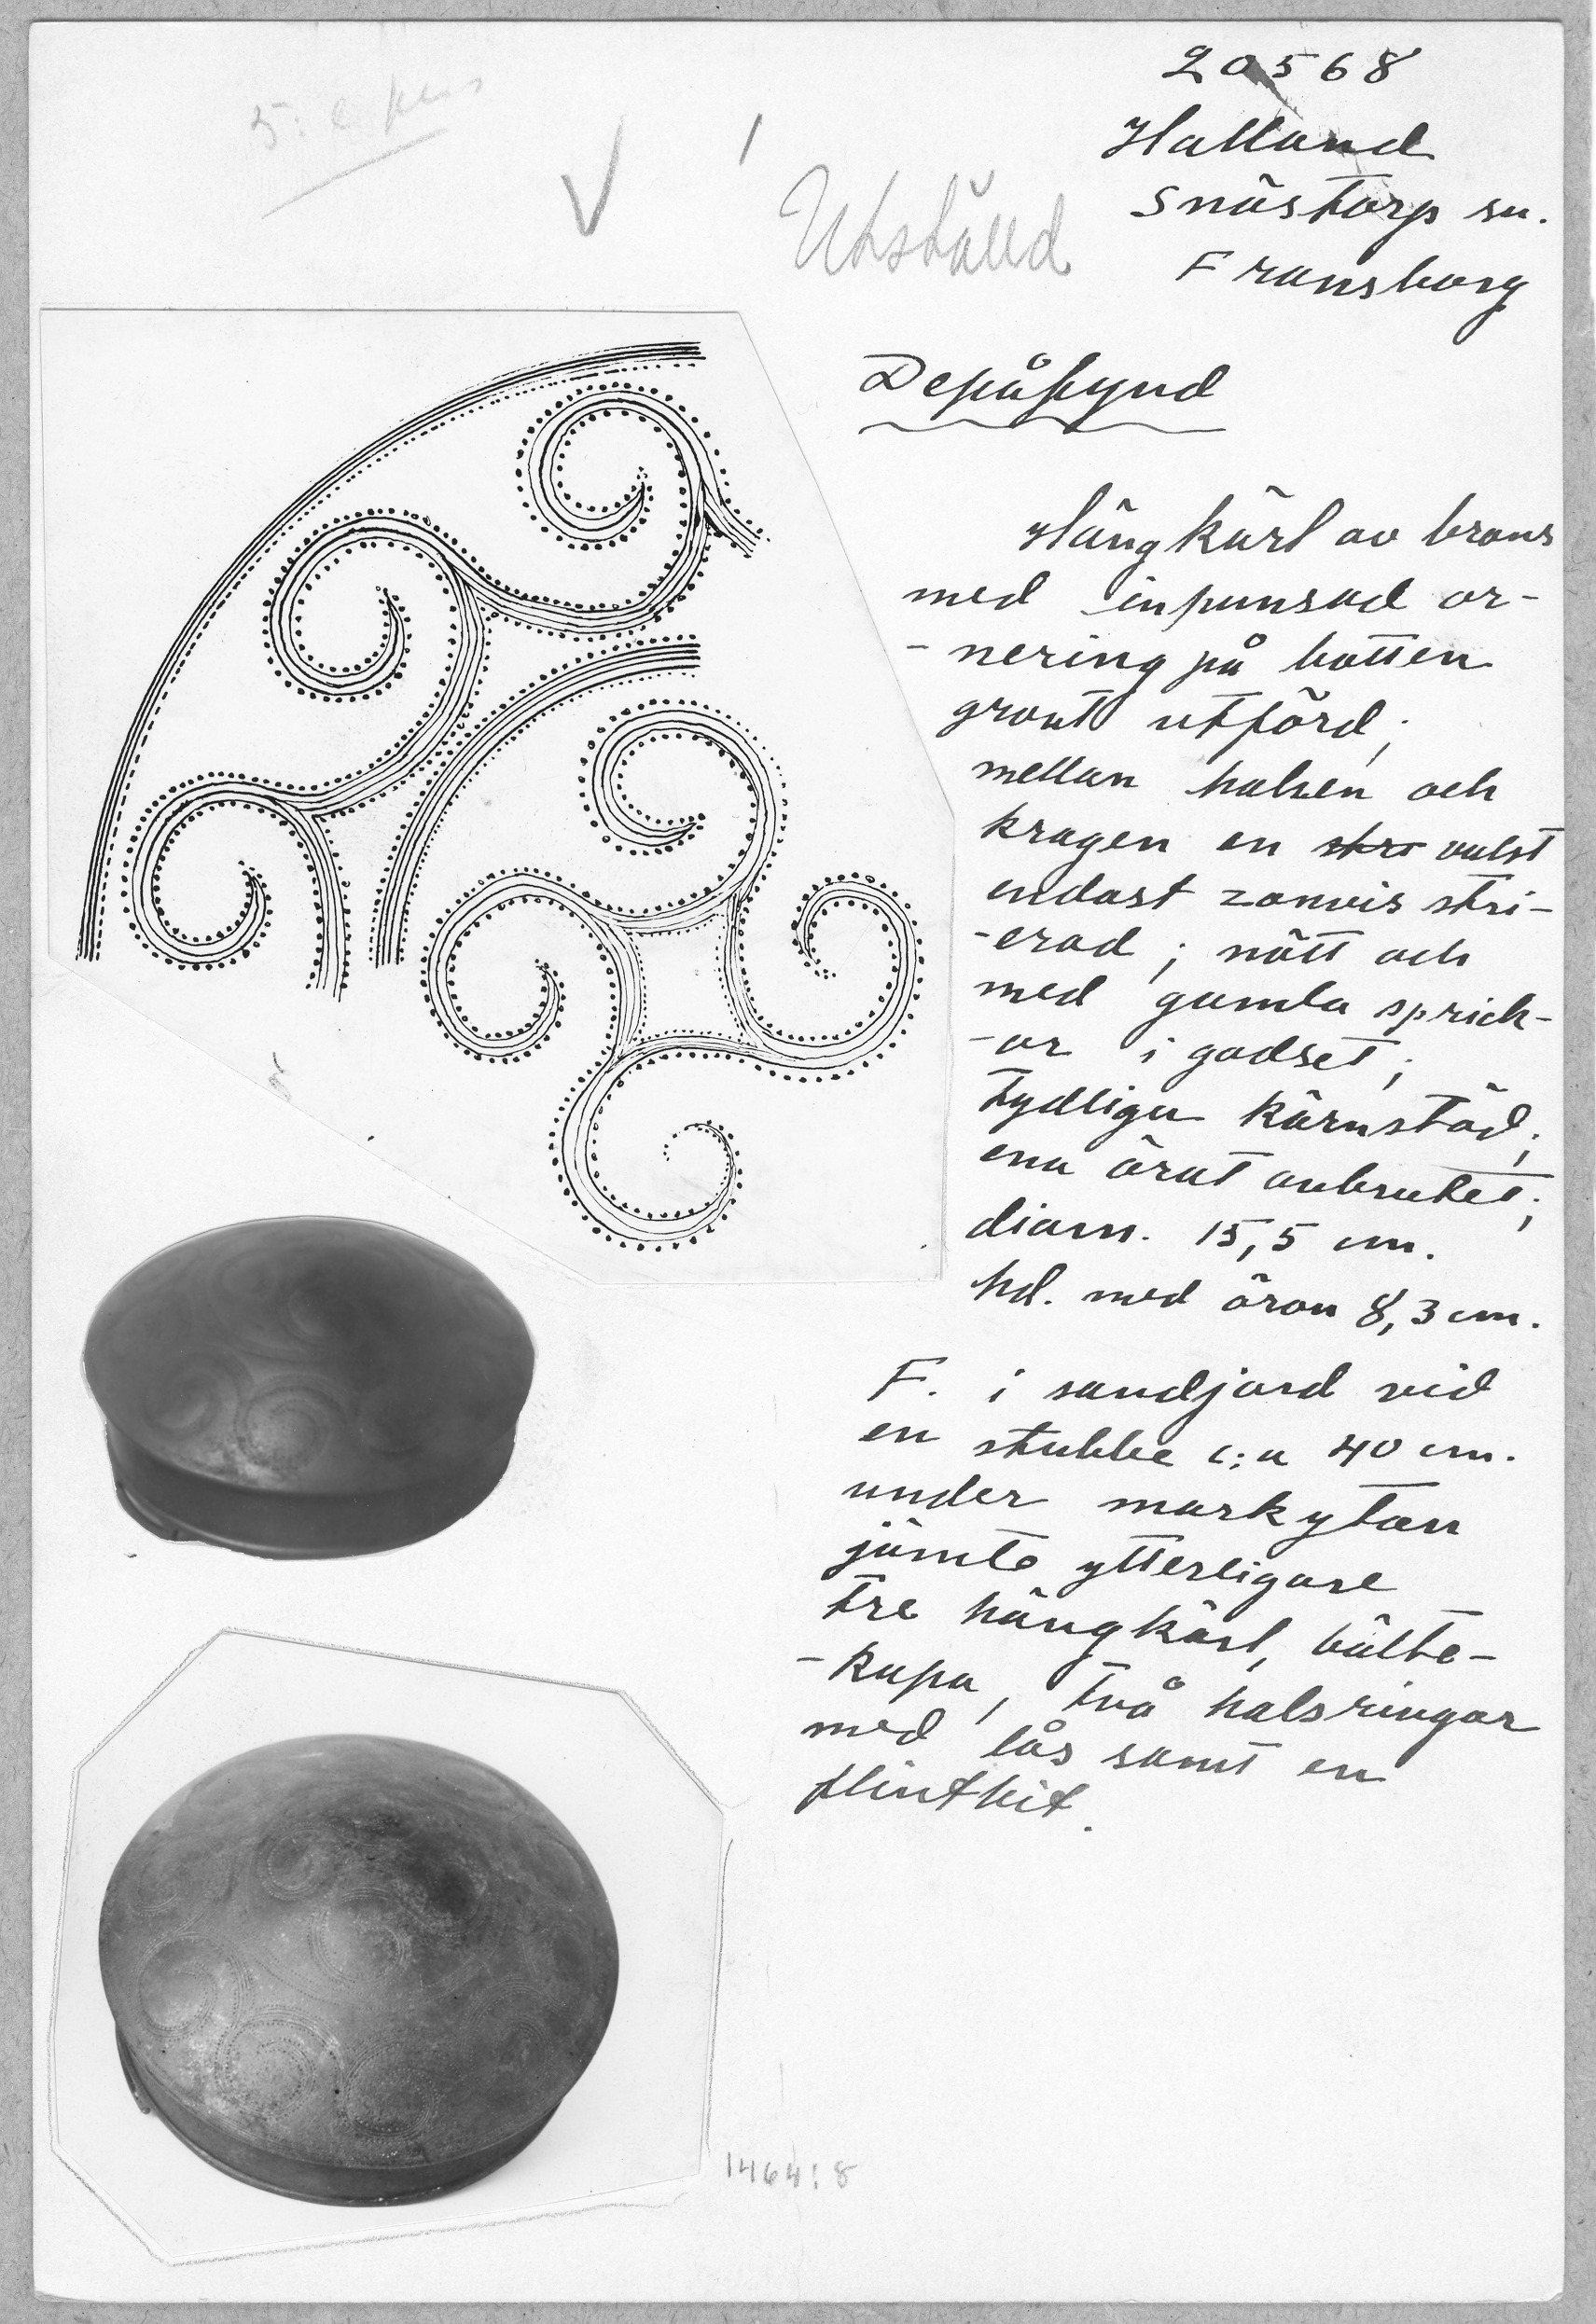 20568
Halland
Snöstorp sn.
Fransborg
5:e per
V
Utställd
Depåfynd
Hängkärl av brons
med inpunsad or-
-nering på botten
grovt utförd;
mellan halsen och
kragen en stre valst
endast zonvis stri-
-erad; nött och
med gamla sprick-
-or i godset;
tydliga kärnstöd;
ena örat avbrutet;
diam. 15,5 cm.
hd. med öron 8,3 cm.
F. i sandjord vid
en stubbe c:a 40 cm.
under markytan
jämte ytterligare
tre hängkärl, bälte-
-kupa, två halsringar
med lås samt en
flintbit.
1464:8